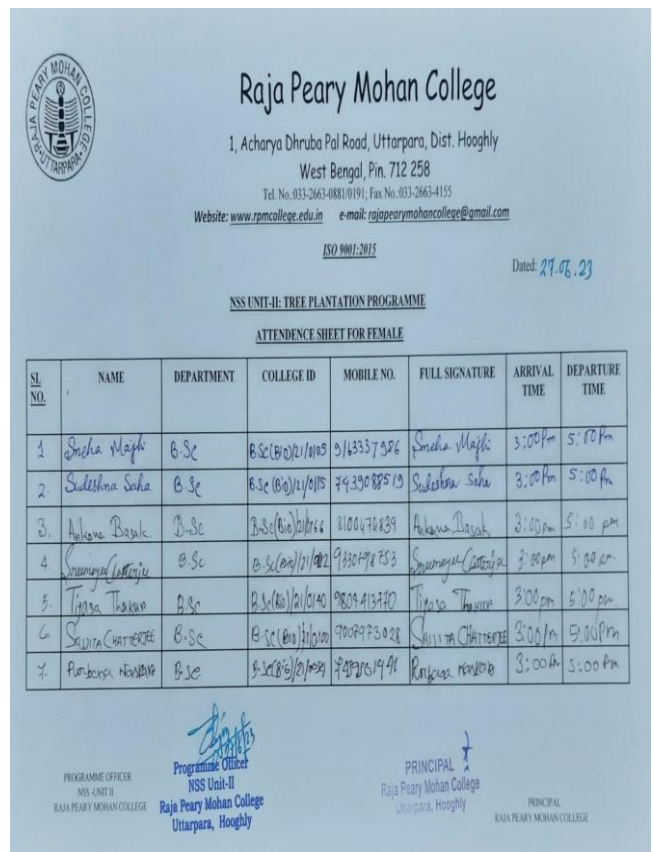 RAJA PEARY MOHAN COLLEGE
UTTARPARA
Raja Peary Mohan College
1, Acharya Dhruba Pal Road, Uttarpara, Dist. Hooghly
West Bengal, Pin. 712 258
Tel. No.:033-2663-0881/0191; Fax No.:033-2663-4155
Website: www.rpmcollege.edu.in e-mail: rajapearymohancollege@gmail.com
ISO 9001:2015
Dated: 27.06.23
NSS UNIT-II: TREE PLANTATION PROGRAMME
ATTENDENCE SHEET FOR FEMALE
SL NO. NAME DEPARTMENT COLLEGE ID MOBILE NO. FULL SIGNATURE ARRIVAL TIME DEPARTURE TIME
1 Sneha Majhi B.Sc BSc(Bio)/21/0105 9163337986 Sneha Majhi 3:00 Pm 5:00 Pm
2. Sudeshna Saha B.Sc B.Sc (Bio)/21/0115 7439088519 Sudeshna Saha 3:00 Pm 5:00 Pm
3. Ankana Basak B.Sc 8100474839 Ankana Basak 3:00 pm 5:00 pm
4. Chatterjee B.Sc Chatterjee 3:00 pm 5:00
5. Tiyasa Thakur B.Sc B.Sc(Bio)/21/0140 Tiyasa Thakur 3:00 pm 5:00 pm.
6 CHATTERJEE B.Sc 9007973028 CHATTERJEE 3:00 Pm 5:00 Pm
7. B.Sc 3:00 Pm 5:00 Pm
PROGRAMME OFFICER
NSS -UNIT II
RAJA PEARY MOHAN COLLEGE
Programme Officer
NSS Unit-II
Raja Peary Mohan College
Uttarpara, Hooghly
PRINCIPAL
Raja Peary Mohan College
Uttarpara, Hooghly
PRINCIPAL
RAJA PEARY MOHAN COLLEGE